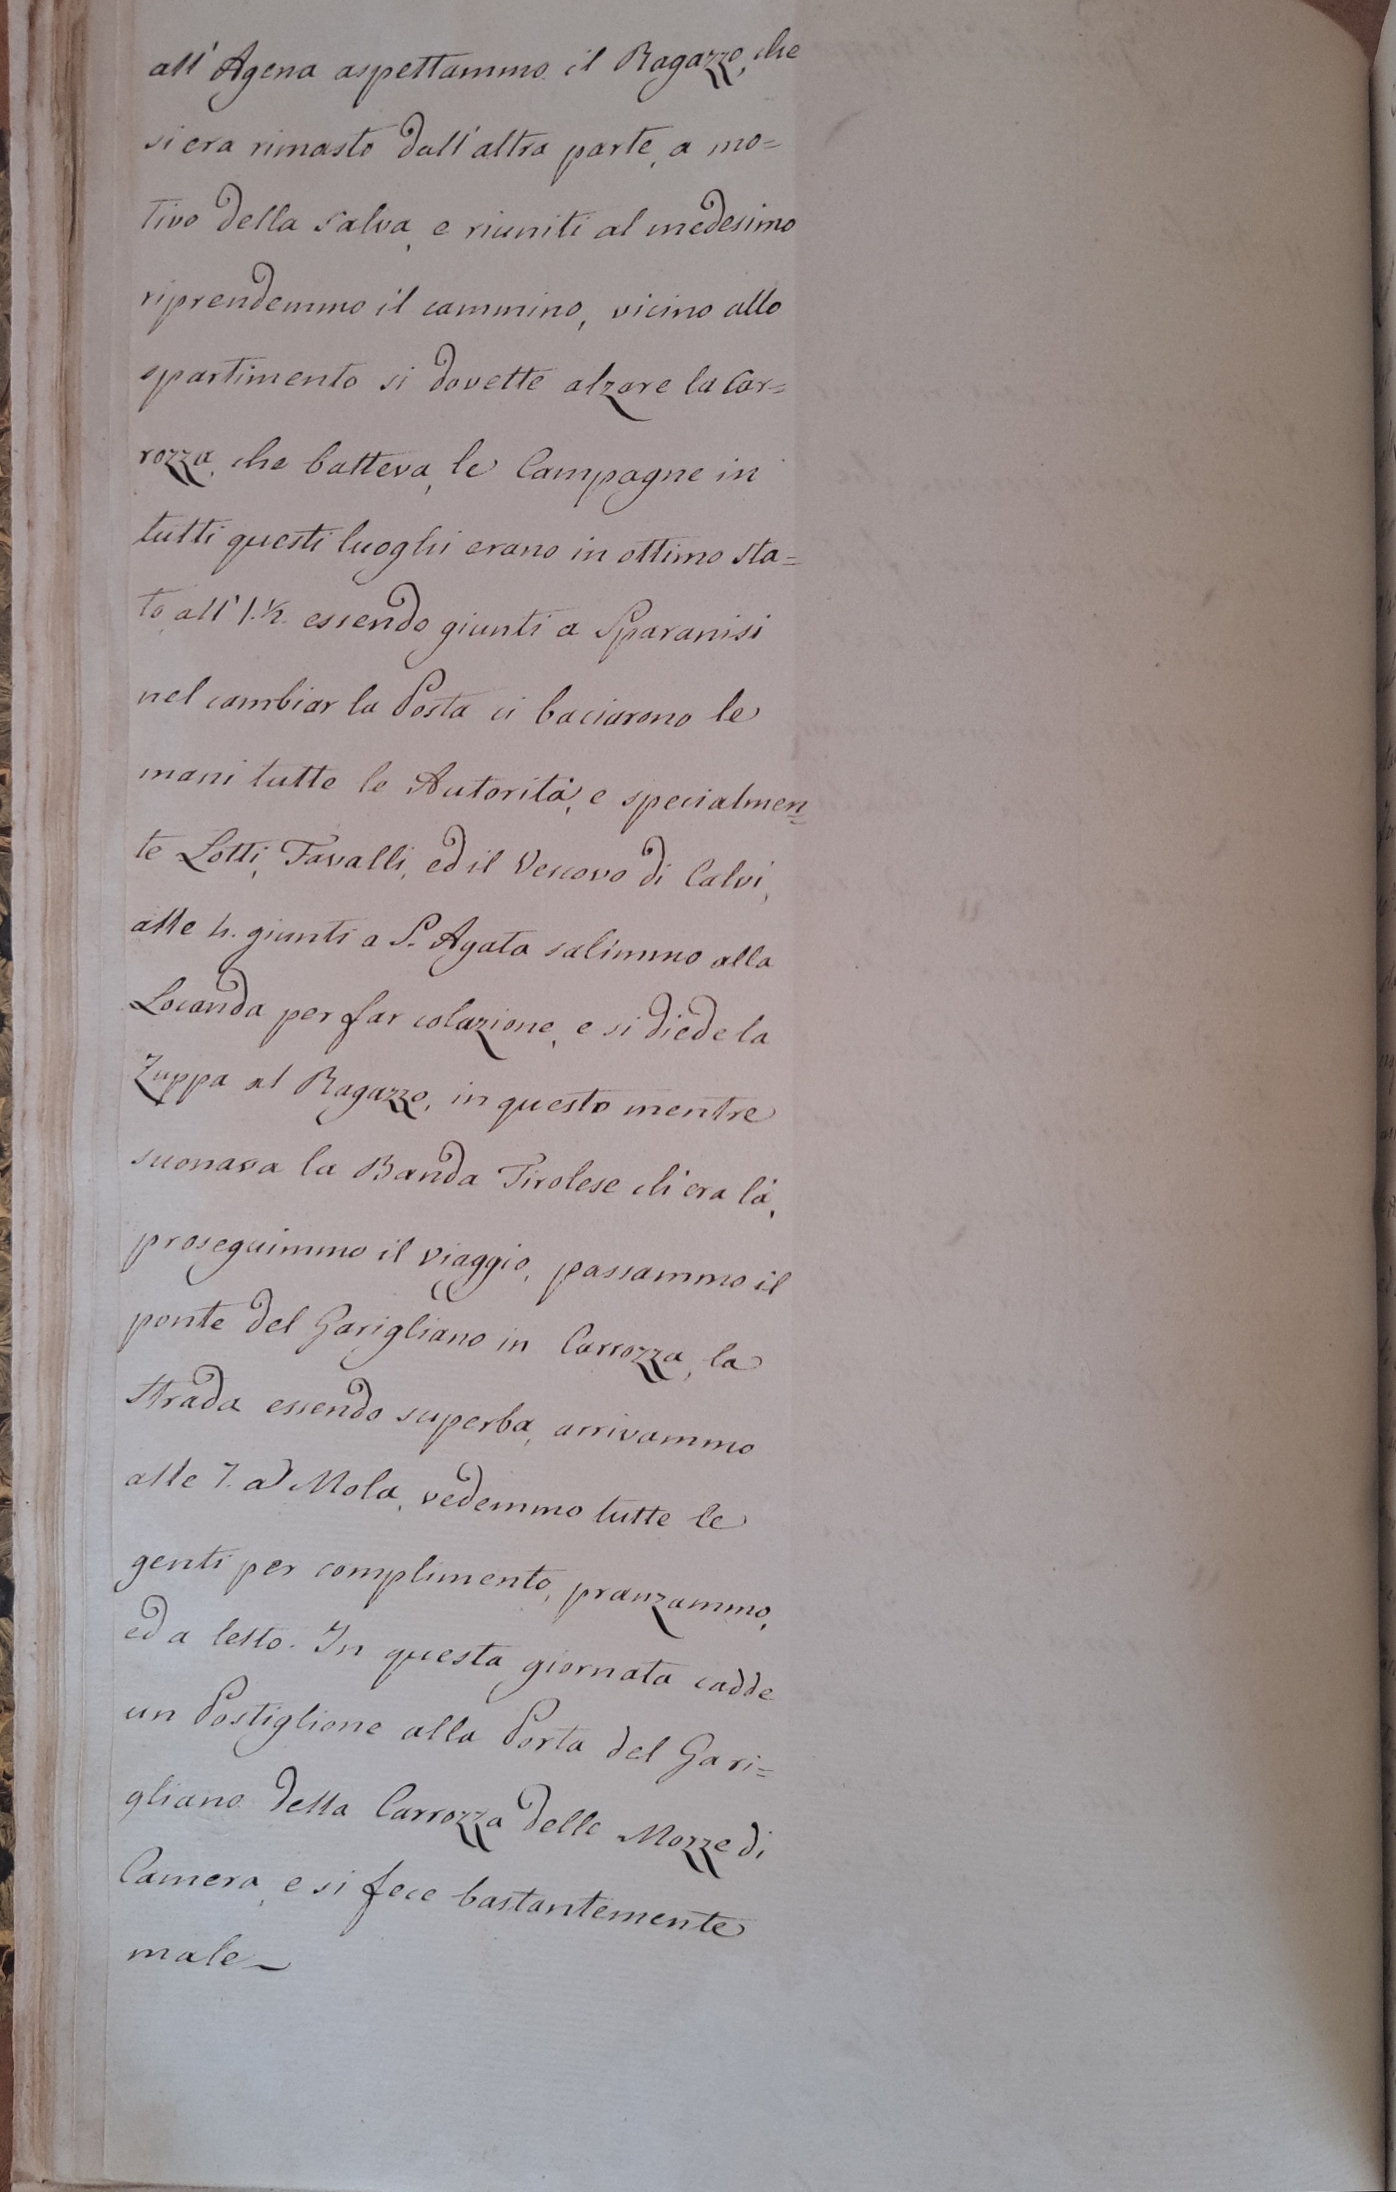 all'Agena aspettammo il Ragazzo, che
si era rimasto dall'altra parte, a mo=
tivo della salva, e riuniti al medesimo
riprendemmo il cammino, vicino allo
spartimento si dovette alzare la Car=
rozza, che batteva, le Campagne in
tutti questi luoghi erano in ottimo sta=
to all'1.½ essendo giunti a Sparanisi
nel cambiar la Posta ci baciarono le
mani tutte le Autorità, e specialmen=
te Lotti, Tavalli, ed il Vescovo di Calvi,
alle 4. giunti a S. Agata salimmo alla
Locanda per far colazione, e si diede la
Zuppa al Ragazzo, in questo mentre
suonava la Banda Tirolese ch'era là,
proseguimmo il viaggio, passammo il
ponte del Garigliano in Carrozza, la
strada essendo superba, arrivammo
alle 7. a Mola, vedemmo tutte le
genti per complimento, pranzammo,
ed a letto. In questa giornata cadde
un Postiglione alla Porta del Gari=
gliano della Carrozza delle Mozze di
Camera, e si fece bastantemente
male